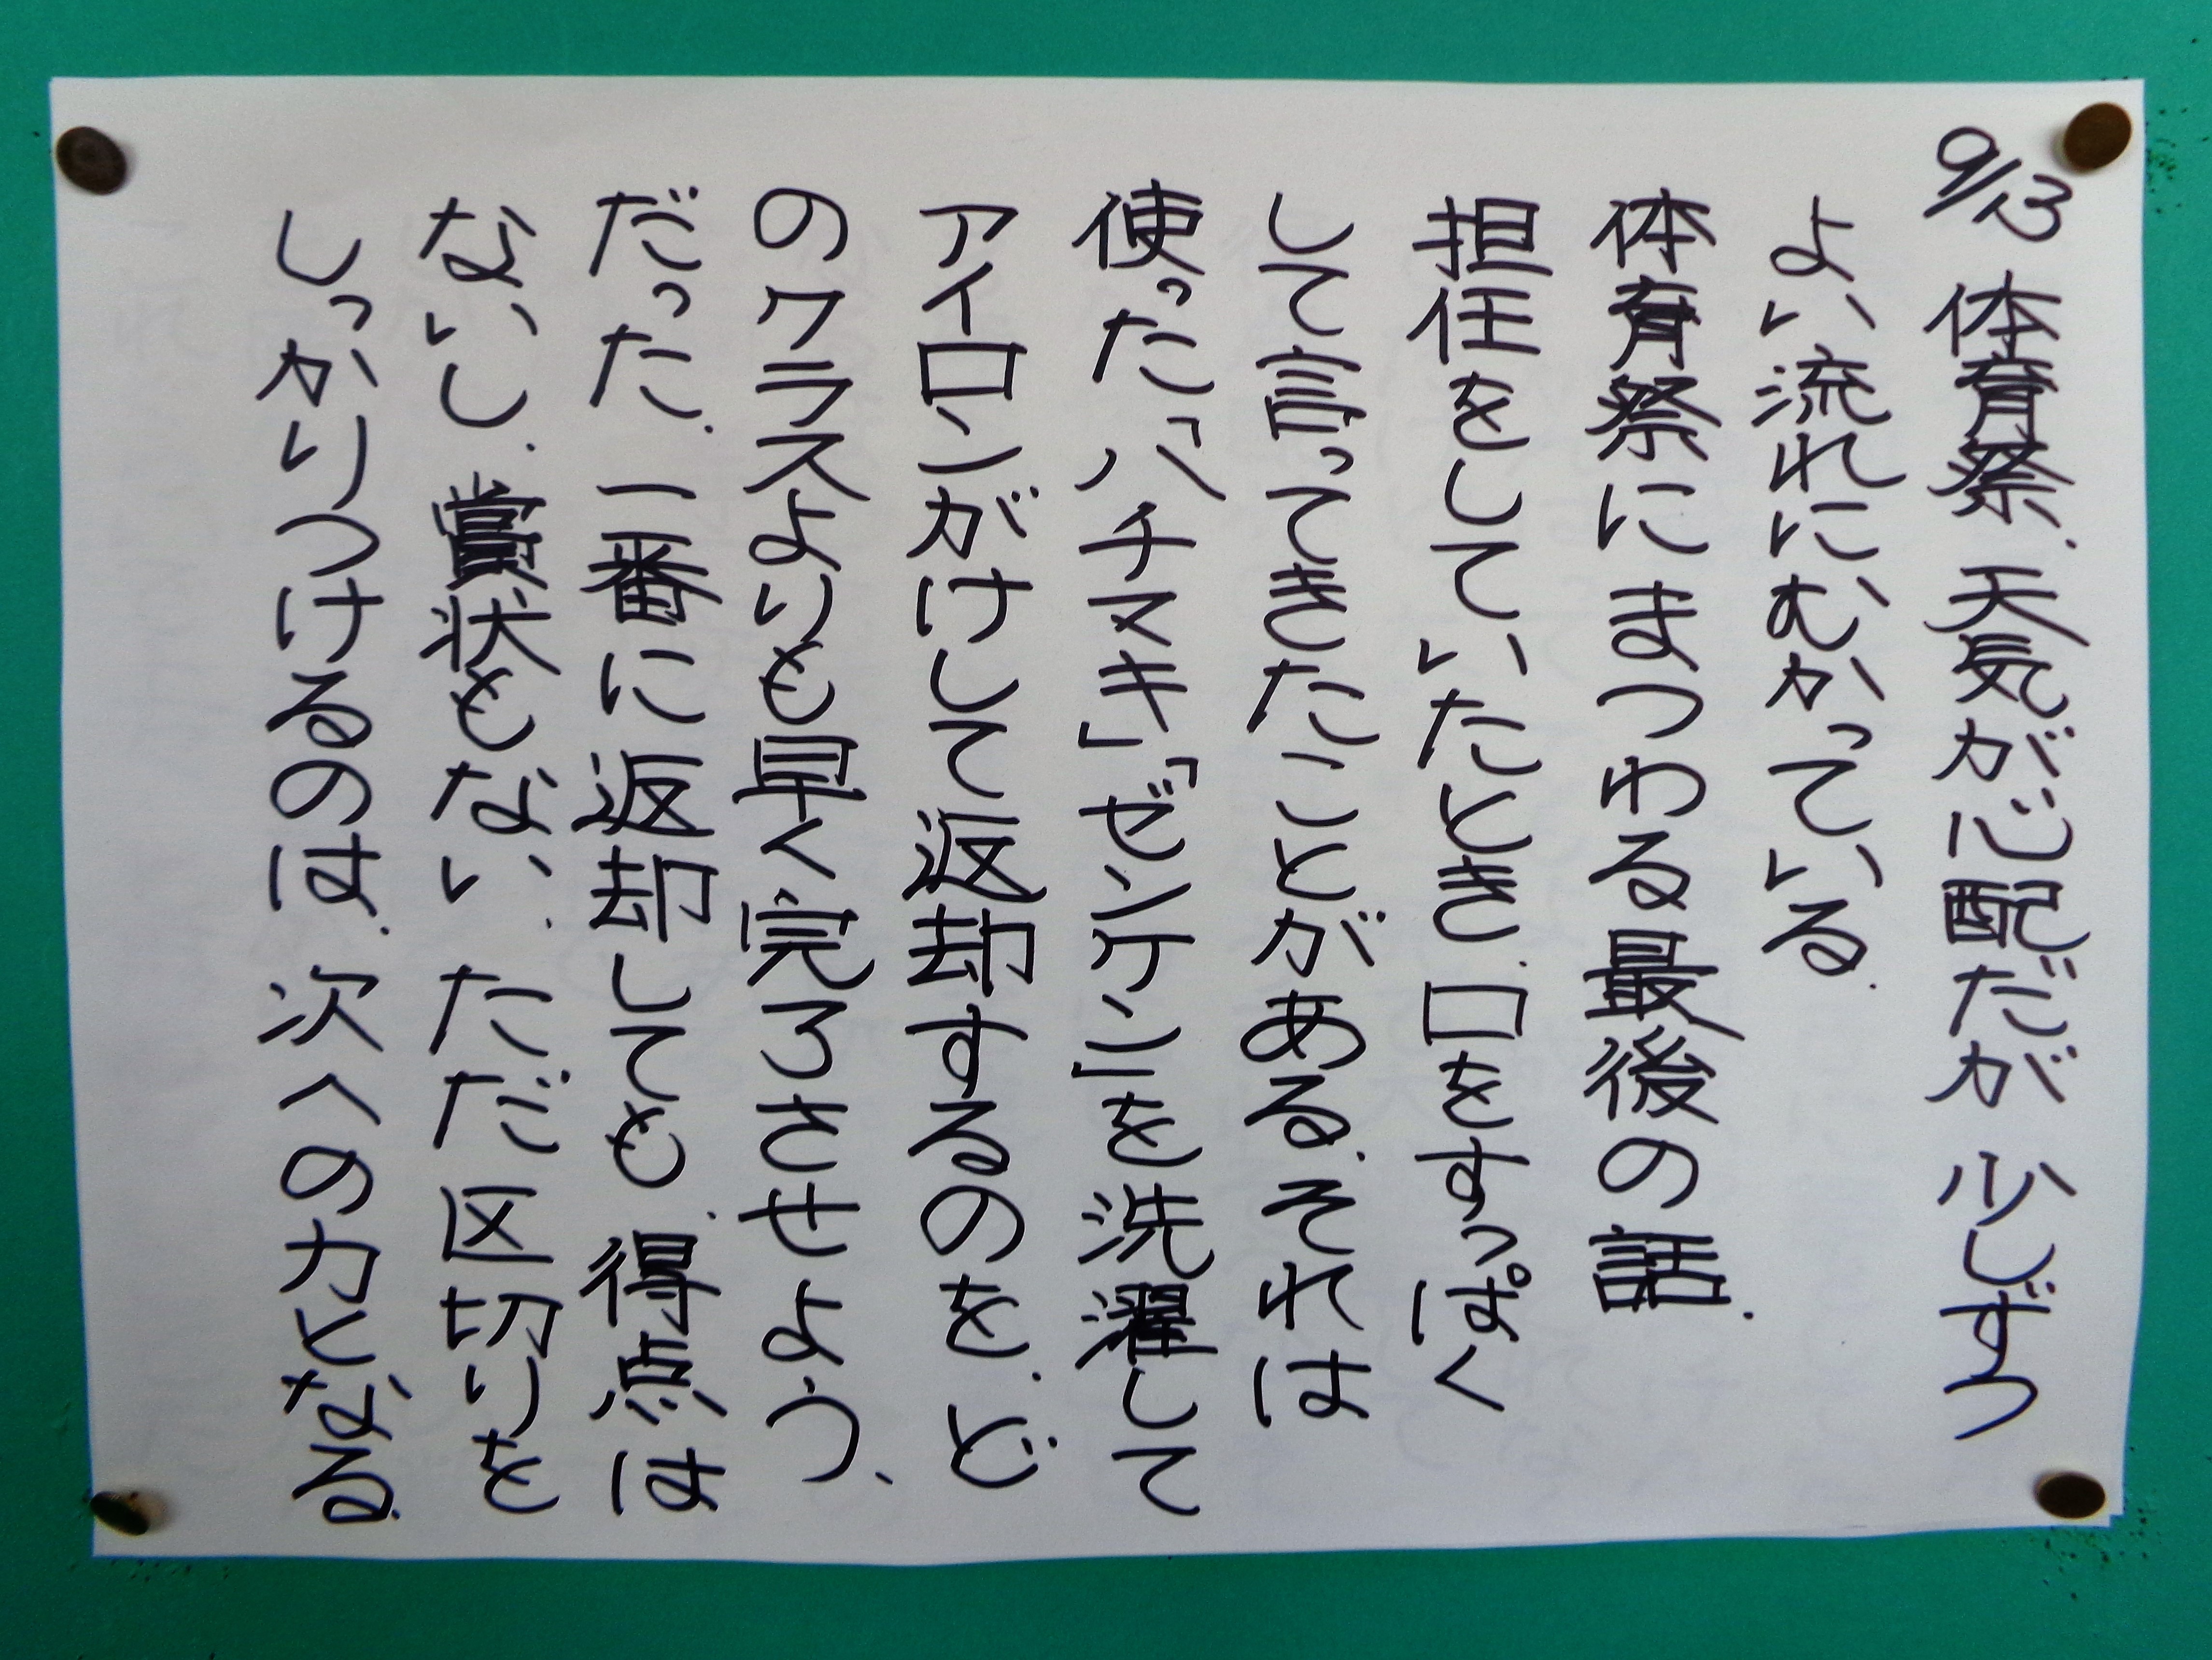 9/13 体育祭. 天気が心配だが 少しずつ
よい流れに、むかっている.
体育祭にまつわる最後の話.
担任をしていたとき. 口をすっぱく
して言ってきたことがある. それは
使った「ハチマキ」「ゼンケン」を洗濯して
アイロンがけして返却するのを. ど
のクラスよりも早く完了させよう、
だった. 一番に返却しても. 得点は
ないし. 賞状もない. ただ区切りを
しっかりつけるのは. 次への力となる.